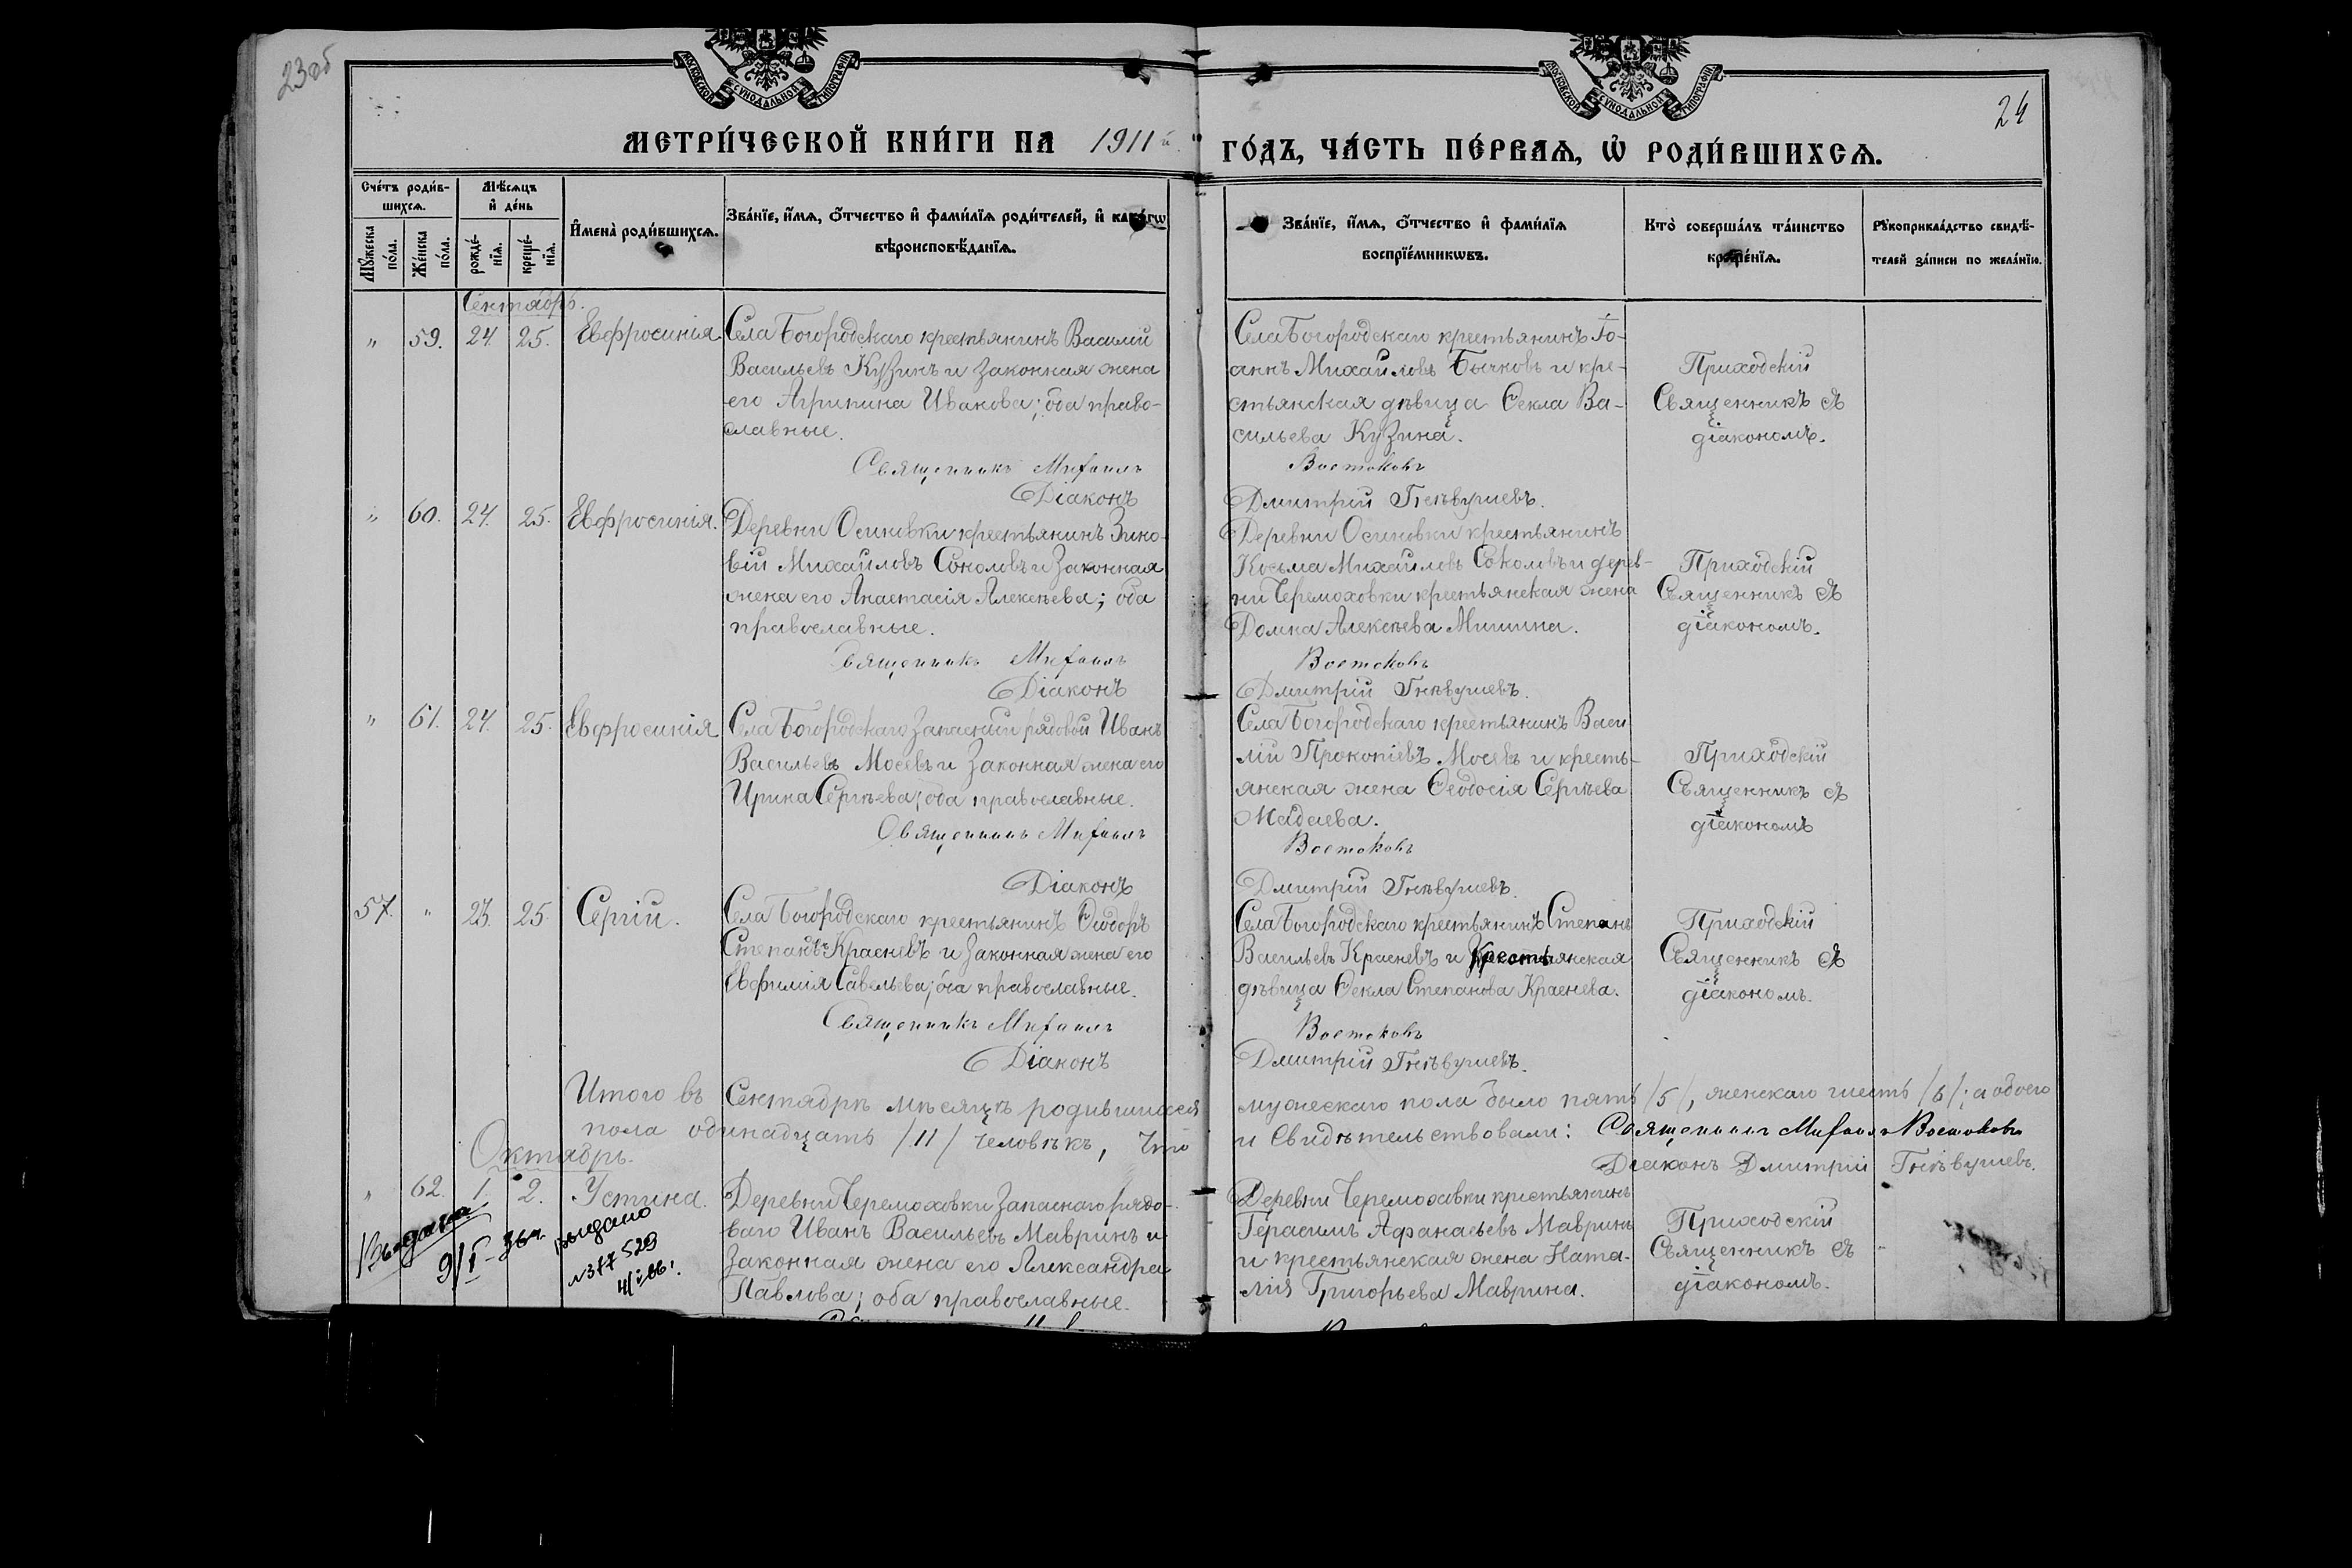 23 об
24
МОСКОВСКОЙ СѴНОДАЛЬНОЙ ТИПОГРАФІИ
МОСКОВСКОЙ СѴНОДАЛЬНОЙ ТИПОГРАФІИ
МЕТРИ́ЧЕСКОЙ КНИ́ГИ НА 1911й
ГО́ДЪ, ЧА́СТЬ ПЕ́РВАѦ, Ѡ҆ РОДИ́ВШИХСѦ.
Сче́тъ роди́в-
шихсѧ.
Мѣ́сѧцъ
и҆ де́нь
Мꙋ́жеска
по́ла.
Же́нска
по́ла.
рожде́-
нїѧ.
креще́-
нїѧ.
И҆мена̀ роди́вшихсѧ.
Зва́нїе, и҆́мѧ, ѻ҆́тчество и҆ фами́лїѧ роди́телей, и҆ како́гѡ
вѣроисповѣ́данїѧ.
Зва́нїе, и҆́мѧ, ѻ҆́тчество и҆ фами́лїѧ
воспрїе́мникѡвъ.
Кто̀ соверша́лъ та́инство
креще́нїѧ.
Рꙋкоприкла́дство свидѣ́-
телей за́писи по жела́нїю.
Сентябрь.
" 59. 24. 25. Евфросинія
Села Богородскаго крестьянинъ Василій
Васильевъ Кузинъ и законная жена
его Агрипина Иванова; оба право-
славные.
Священникъ Михаилъ
Діаконъ
Села Богородскаго крестьянинъ Іо-
аннъ Михайловъ Бычковъ и кре-
стьянская дѣвица Ѳекла Ва-
сильева Кузина.
Востоковъ
Дмитрій Гнѣвушевъ.
Приходскій
Священникъ съ
діакономъ.
" 60. 24. 25. Евфросинія.
Деревни Осиновки крестьянинъ Зино-
вій Михайловъ Соколовъ и законная
жена его Анастасія Алексѣева; оба
православные.
Священникъ Михаилъ
Діаконъ
Деревни Осиновки крестьянинъ
Косьма Михайловъ Соколовъ и дерев-
ни Черемоховки крестьянская жена
Домна Алексѣева Мишина.
Востоковъ
Дмитрій Гнѣвушевъ.
Приходскій
Священникъ съ
діакономъ.
" 61. 24. 25. Евфросинія
Села Богородскаго запасный рядовой Иванъ
Васильевъ Мосевъ и законная жена его
Ирина Сергѣева; оба православные.
Священникъ Михаилъ
Діаконъ
Села Богородскаго крестьянинъ Васи-
лій Прокопіевъ Мосевъ и кресть-
янская жена Ѳеодосія Сергѣева
Востоковъ
Дмитрій Гнѣвушевъ.
Приходскій
Священникъ съ
діакономъ
57. " 23. 25. Сергій.
Села Богородскаго крестьянинъ Ѳеодоръ
Степановъ Красневъ и законная жена его
Евфимія Савельева; оба православные.
Священникъ Михаилъ
Діаконъ
Села Богородскаго крестьянинъ Степанъ
Васильевъ Красневъ и крестьянская
дѣвица Ѳекла Степанова Краснева.
Востоковъ
Дмитрій Гнѣвушевъ.
Приходскій
Священникъ съ
діакономъ.
Итого въ Сентябрѣ мѣсяцѣ родившихся мужескаго пола было пять /5/, женскаго шесть /6/; а обоего
пола одинадцать /11/ человѣкъ, что и свидѣтельствовали: Священникъ Михаилъ Востоковъ
Діаконъ Дмитрій Гнѣвушевъ.
Октябрь.
" 62. 1. 2. Устина.
Деревни Черемоховки запаснаго рядо-
ваго Иванъ Васильевъ Мавринъ и
законная жена его Александра
Павлова; оба православные.
Деревни Черемоховки крестьянинъ
Герасимъ Аѳанасьевъ Мавринъ
и крестьянская жена Ната-
лія Григорьева Маврина.
Приходскій
Священникъ съ
діакономъ.
Выдана
9/I-36г.
выдано
№377529